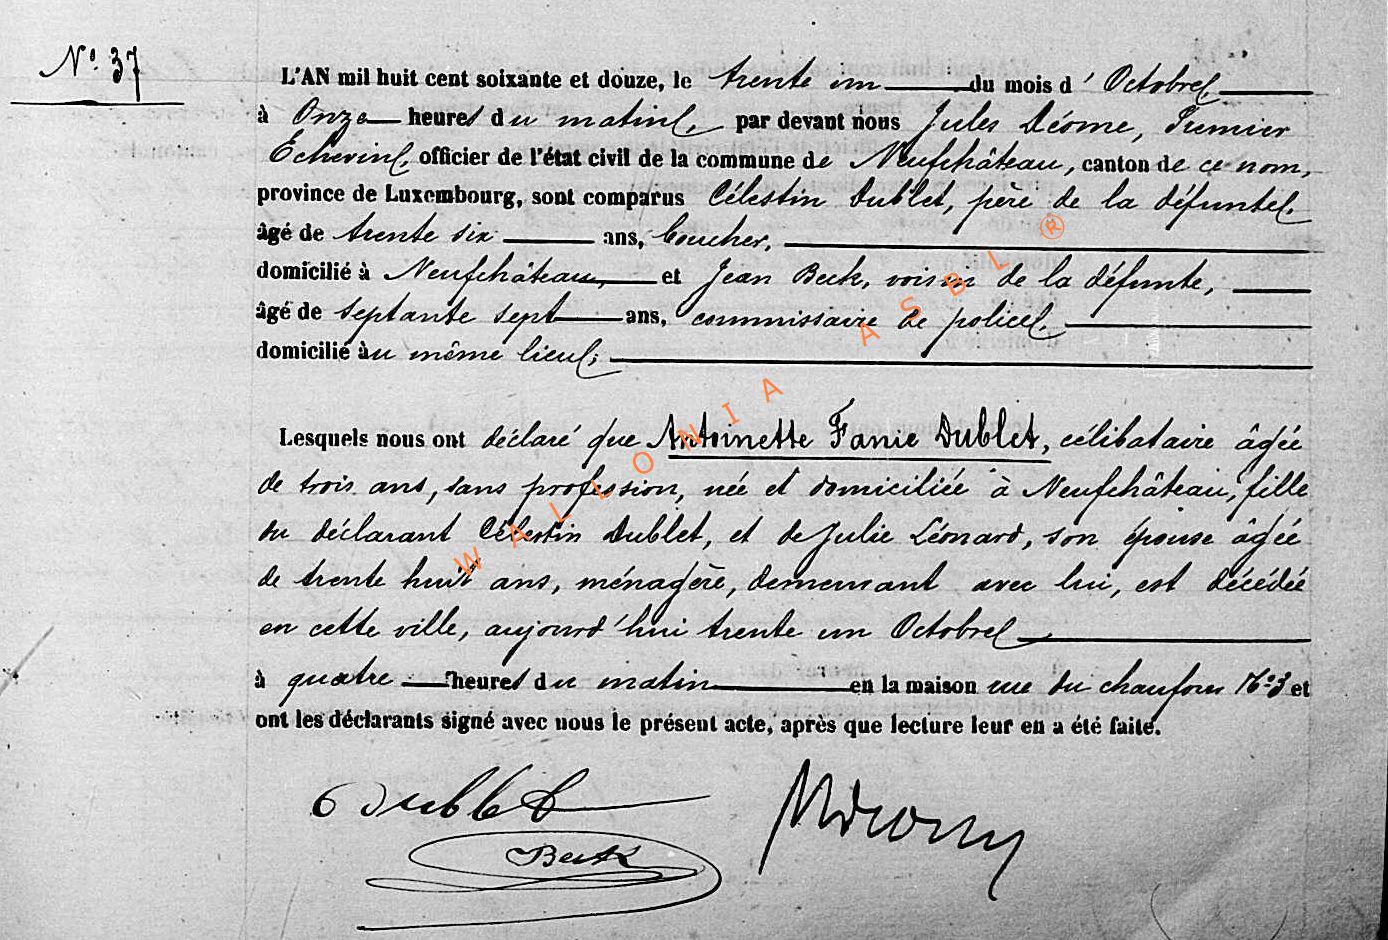 N° 37
L'AN mil huit cent soixante et douze, le trente un du mois d'Octobre
à Onze heures du matin, par devant nous Jules Désome, Premier
Echevin, officier de l'état civil de la commune de Neufchâteau, canton de ce nom,
province de Luxembourg, sont comparus Célestin Dublet, père de la défunte,
âgé de trente six ans, boucher,
domicilié à Neufchâteau, et Jean Beck, voisin de la défunte,
âgé de septante sept ans, commissaire de police,
domicilié au même lieu;
Lesquels nous ont déclaré que Antoinette Fanie Dublet, célibataire âgée
de trois ans, sans profession, née et domiciliée à Neufchâteau, fille
du déclarant Célestin Dublet, et de Julie Léonard, son épouse âgée
de trente huit ans, ménagère, demeurant avec lui, est décédée
en cette ville, aujourd'hui trente un Octobre
à quatre heures du matin en la maison rue du chaufour N° 3 et
ont les déclarants signé avec nous le présent acte, après que lecture leur en a été faite.
C Dublet
Beck
WALLONIA ASBL ®